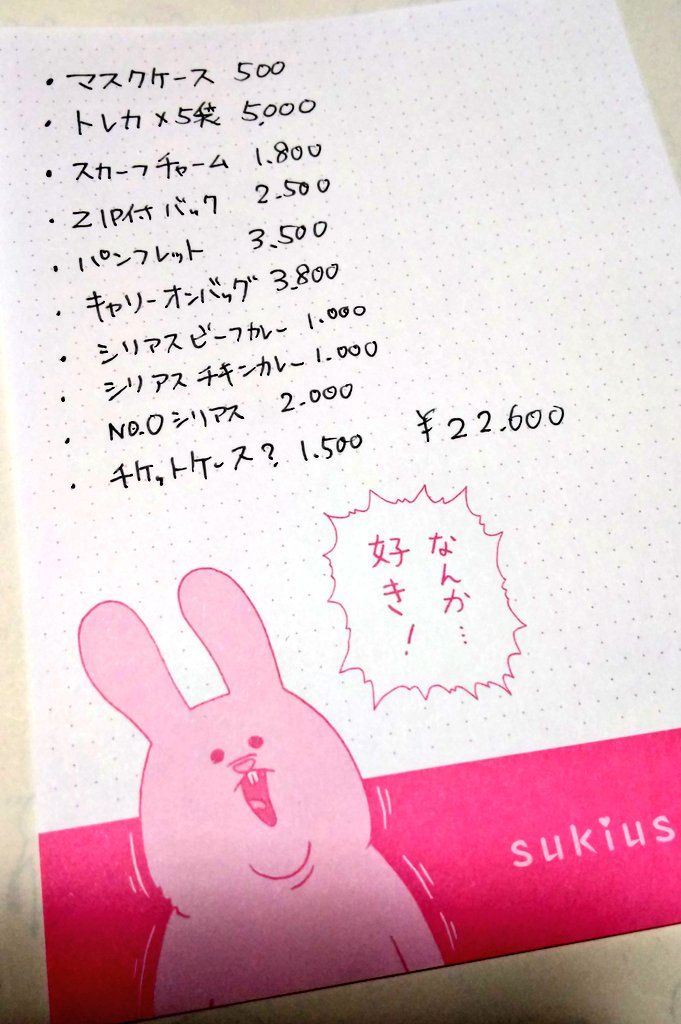 ・マスクケース 500
・トレカ×5袋 5,000
・スカーフチャーム 1.800
・ZIP付バック 2.500
・パンフレット 3.500
・キャリーオンバッグ 3.800
・シリアスビーフカレー 1.000
・シリアスチキンカレー 1.000
・NO.0シリアス 2.000
・チケットケース? 1.500 ¥22.600
なんか…
好き!
sukius